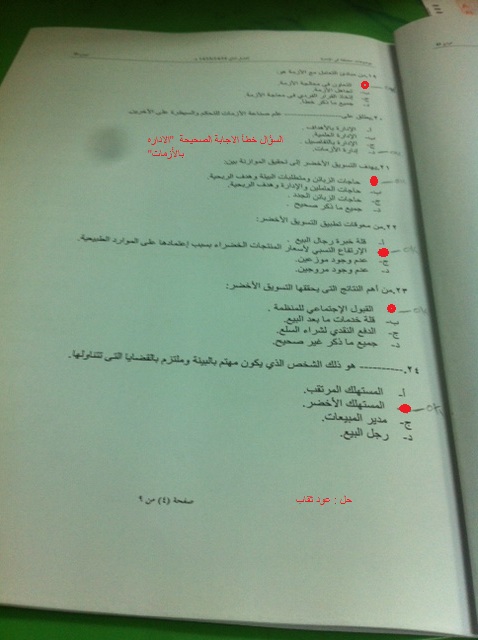 ١٩.من مبادئ التعامل مع الأزمة هو:
أ. التعاون في معالجة الأزمة.
ب. تجاهل الأزمة.
ج. إتخاذ القرار الفردي في معالجة الأزمة.
د. جميع ما ذكر خطأ.
٢٠.يطلق على---------- علم صناعة الأزمات للتحكم والسيطرة على الآخرين
أ. الإدارة بالأهداف.
ب. الإدارة العلمية.
ج. الإدارة بالتفاصيل.
د. إدارة الأزمات.
السؤال خطأ الاجابة الصحيحة "الاداره
بالأزمات"
٢١.يهدف التسويق الأخضر إلى تحقيق الموازنة بين:
أ. حاجات الزبائن ومتطلبات البيئة وهدف الربحية.
ب. حاجات العاملين والإدارة وهدف الربحية.
ج. حاجات الزبائن الجدد .
د. جميع ما ذكر صحيح .
٢٢.من معوقات تطبيق التسويق الأخضر:
أ. قلة خبرة رجال البيع .
ب. الإرتفاع النسبي لأسعار المنتجات الخضراء بسبب إعتمادها على الموارد الطبيعية.
ج. عدم وجود موزعين.
د. عدم وجود مروجين.
٢٣.من أهم النتائج التى يحققها التسويق الأخضر:
أ. القبول الإجتماعي للمنظمة .
ب- قلة خدمات ما بعد البيع.
ج- الدفع النقدي لشراء السلع.
د- جميع ما ذكر غير صحيح.
٢٤.---------- هو ذلك الشخص الذي يكون مهتم بالبيئة وملتزم بالقضايا التى تتناولها.
أ- المستهلك المرتقب.
المستهلك الأخضر. ok
ج- مدير المبيعات.
د- رجل البيع.
حل : عود ثقاب
صفحة (٤) من ٦